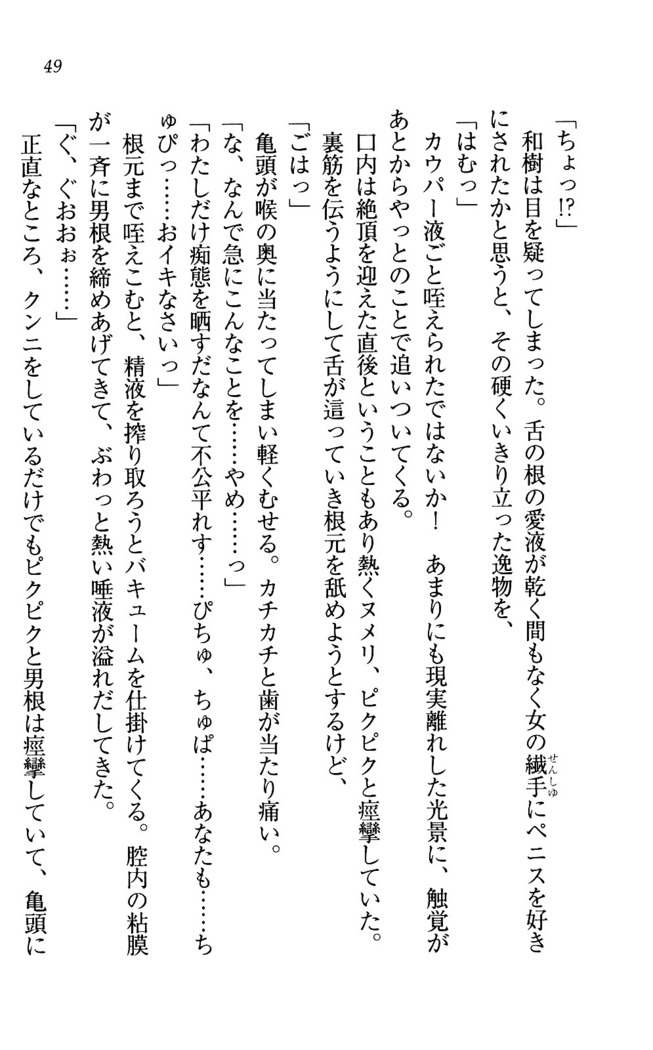 49
「ちょっ!?」
　和樹は目を疑ってしまった。舌の根の愛液が乾く間もなく女の繊手にペニスを好き
にされたかと思うと、その硬くいきり立った逸物を、
「はむっ」
　カウパー液ごと咥えられたではないか！　あまりにも現実離れした光景に、触覚が
あとからやっとのことで追いついてくる。
　口内は絶頂を迎えた直後ということもあり熱くヌメリ、ピクピクと痙攣していた。
　裏筋を伝うようにして舌が這っていき根元を舐めようとするけど、
「ごはっ」
　亀頭が喉の奥に当たってしまい軽くむせる。カチカチと歯が当たり痛い。
「な、なんで急にこんなことを……やめ……っ」
「わたしだけ痴態を晒すだなんて不公平れす……ぴちゅ、ちゅぱ……あなたも……ち
ゅぴっ……おイキなさいっ」
　根元まで咥えこむと、精液を搾り取ろうとバキュームを仕掛けてくる。腔内の粘膜
が一斉に男根を締めあげてきて、ぶわっと熱い唾液が溢れだしてきた。
「ぐ、ぐおおぉ……」
　正直なところ、クンニをしているだけでもピクピクと男根は痙攣していて、亀頭に
せんしゅ